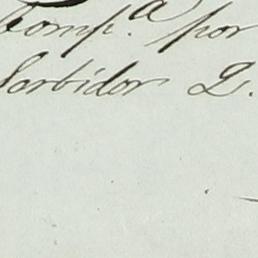 Comp.ª por
Sorbidor 2.